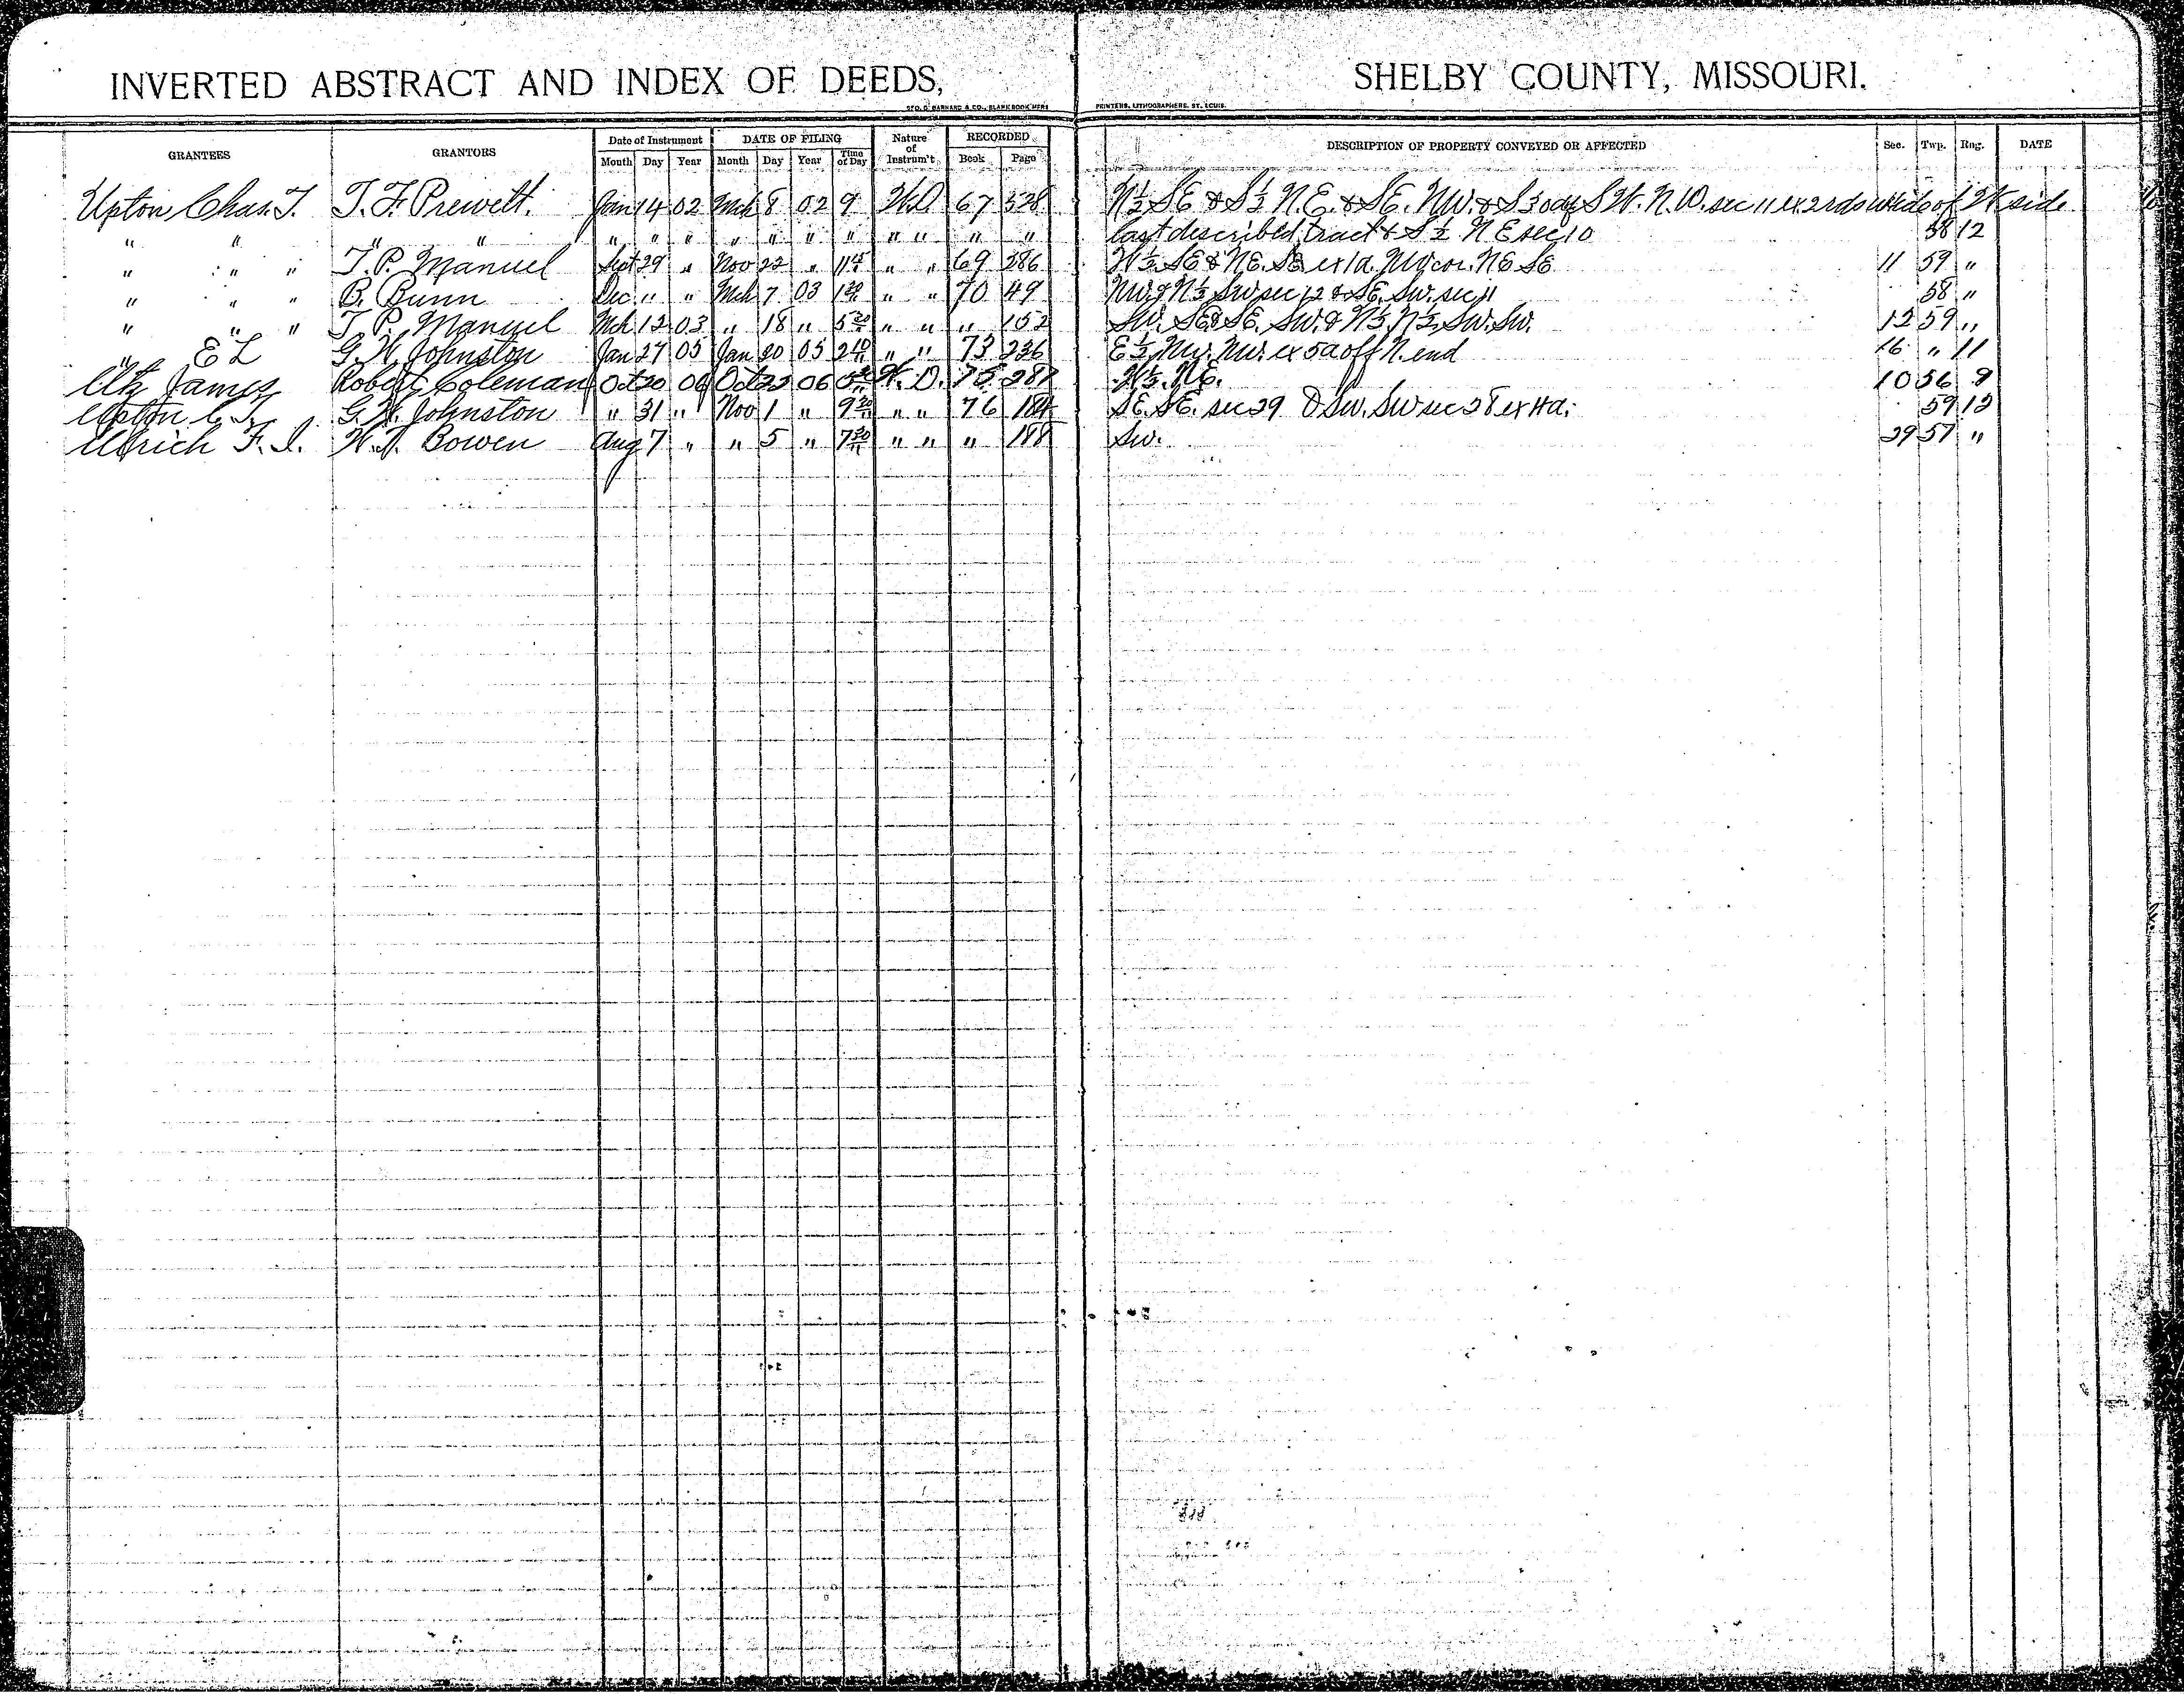 INVERTED ABSTRACT AND INDEX OF DEEDS, SHELBY COUNTY, MISSOURI.
GEO. D. BARNARD & CO., BLANK BOOK MFRS PRINTERS, LITHOGRAPHERS, ST. LOUIS.
GRANTEES GRANTORS Date of Instrument DATE OF FILING Nature of Instrum't RECORDED DESCRIPTION OF PROPERTY CONVEYED OR AFFECTED Sec. Twp. Rng. DATE
Month Day Year Month Day Year Time of Day Book Page
Upton Chas. T. T. F. Prewitt. Jan 14 02 Mch 8 02 9 W.D 67 528 N½ SE & S½ N.E. & SE. NW. & S 30 S W. N.W. sec 11 ex 2 rds wide of W side
" " " " " " " " " " " " " " " last described tract & S½ NE sec 10 58 12
" " " T. P. Manuel Sept 29 " Nov 22 " 11 " " 69 286 W½ SE & NE. SE ex 1a. NW cor. NE SE 11 59 "
" " " B. Bunn Dec. 11 " Mch 7 03 1 " " 70 49 NW. & N½ SW sec 12 & SE. SW. sec 11 58 "
" " " T. P. Manuel Mch 12 03 " 18 " 5 " " " 152 SW. SE & SE. SW. & N½ N½ SW. SW. 12 59 "
" E L G. W. Johnston Jan 27 05 Jan 30 05 2 " " 73 236 E½ NW. NW. ex 5a off N. end 16 " 11
Utz James Robert Coleman Oct 20 06 Oct 22 06 W. D. 75 287 W½ NE. 10 56 9
Upton C. T. G. W. Johnston " 31 " Nov 1 " 9 " " 76 184 SE. SE. sec 29 & SW. SW sec 28 ex 4a. 59 12
Ulrich F. I. W. T. Bowen Aug 7 " " 5 " 7 " " " 198 SW. 29 57 "